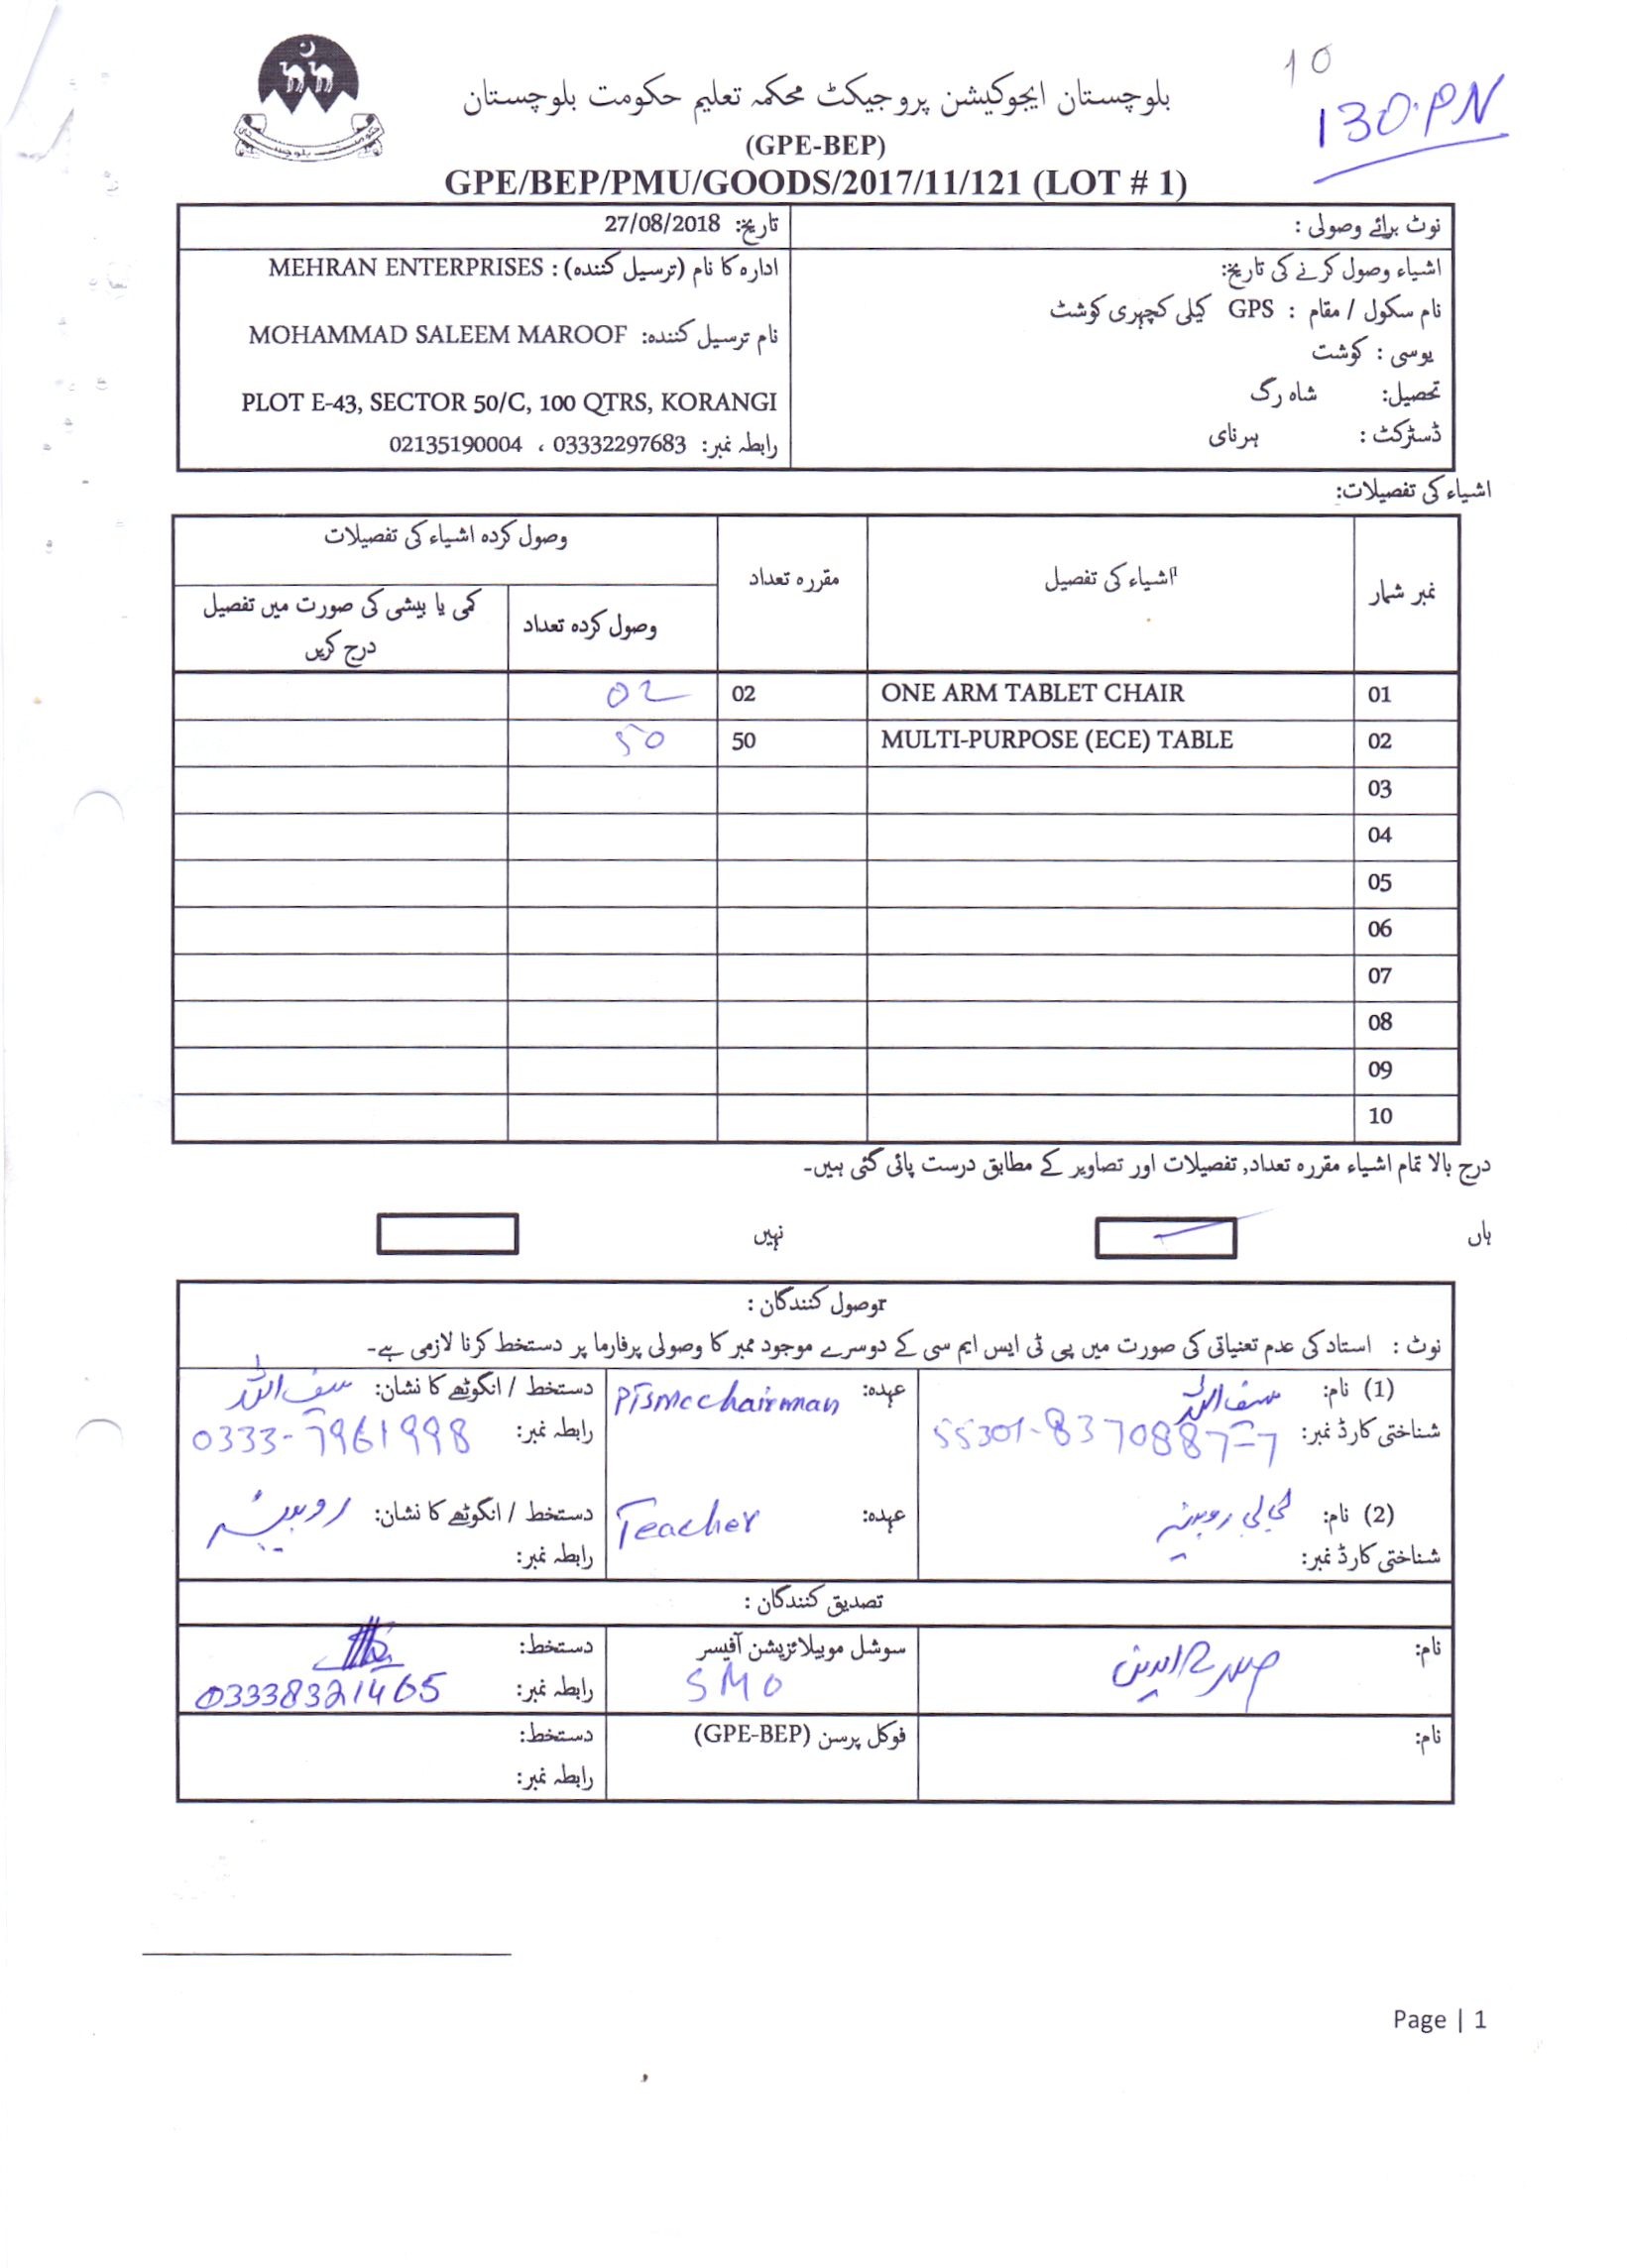 10
130.PN
بلوچستان ایجوکیشن پروجیکٹ محکمہ تعلیم حکومت بلوچستان
(GPE-BEP)
GPE/BEP/PMU/GOODS/2017/11/121 (LOT # 1)
نوٹ برائے وصولی :
تاریخ: 27/08/2018
اشیاء وصول کرنے کی تاریخ:
نام سکول / مقام : GPS کیلی کچہری کوشٹ
یوسی : کوشت
تحصیل: شاہ رگ
ڈسٹرکٹ : ہرنای
ادارہ کا نام (ترسیل کنندہ) : MEHRAN ENTERPRISES
نام ترسیل کنندہ: MOHAMMAD SALEEM MAROOF
PLOT E-43, SECTOR 50/C, 100 QTRS, KORANGI
رابطہ نمبر: 03332297683 ، 02135190004
اشیاء کی تفصیلات:
نمبر شمار
اشیاء کی تفصیل
مقررہ تعداد
وصول کردہ اشیاء کی تفصیلات
وصول کردہ تعداد
کمی یا بیشی کی صورت میں تفصیل
درج کریں
01 ONE ARM TABLET CHAIR 02 02
02 MULTI-PURPOSE (ECE) TABLE 50 50
03
04
05
06
07
08
09
10
درج بالا تمام اشیاء مقررہ تعداد, تفصیلات اور تصاویر کے مطابق درست پائی گئی ہیں۔
ہاں
نہیں
وصول کنندگان :
نوٹ : استاد کی عدم تعنیاتی کی صورت میں پی ٹی ایس ایم سی کے دوسرے موجود ممبر کا وصولی پرفارما پر دستخط کرنا لازمی ہے۔
(1) نام: سیف اللہ
عہدہ: PTSMC chairman
دستخط / انگوٹھے کا نشان: سیف اللہ
شناختی کارڈ نمبر: 55301-8370887-7
رابطہ نمبر: 0333-7961998
(2) نام: بی بی روبینہ
عہدہ: Teacher
دستخط / انگوٹھے کا نشان: روبینہ
شناختی کارڈ نمبر:
رابطہ نمبر:
تصدیق کنندگان :
نام:
سوشل موبیلائزیشن آفیسر
SMO
دستخط:
رابطہ نمبر: 03338321465
نام:
فوکل پرسن (GPE-BEP)
دستخط:
رابطہ نمبر:
Page | 1